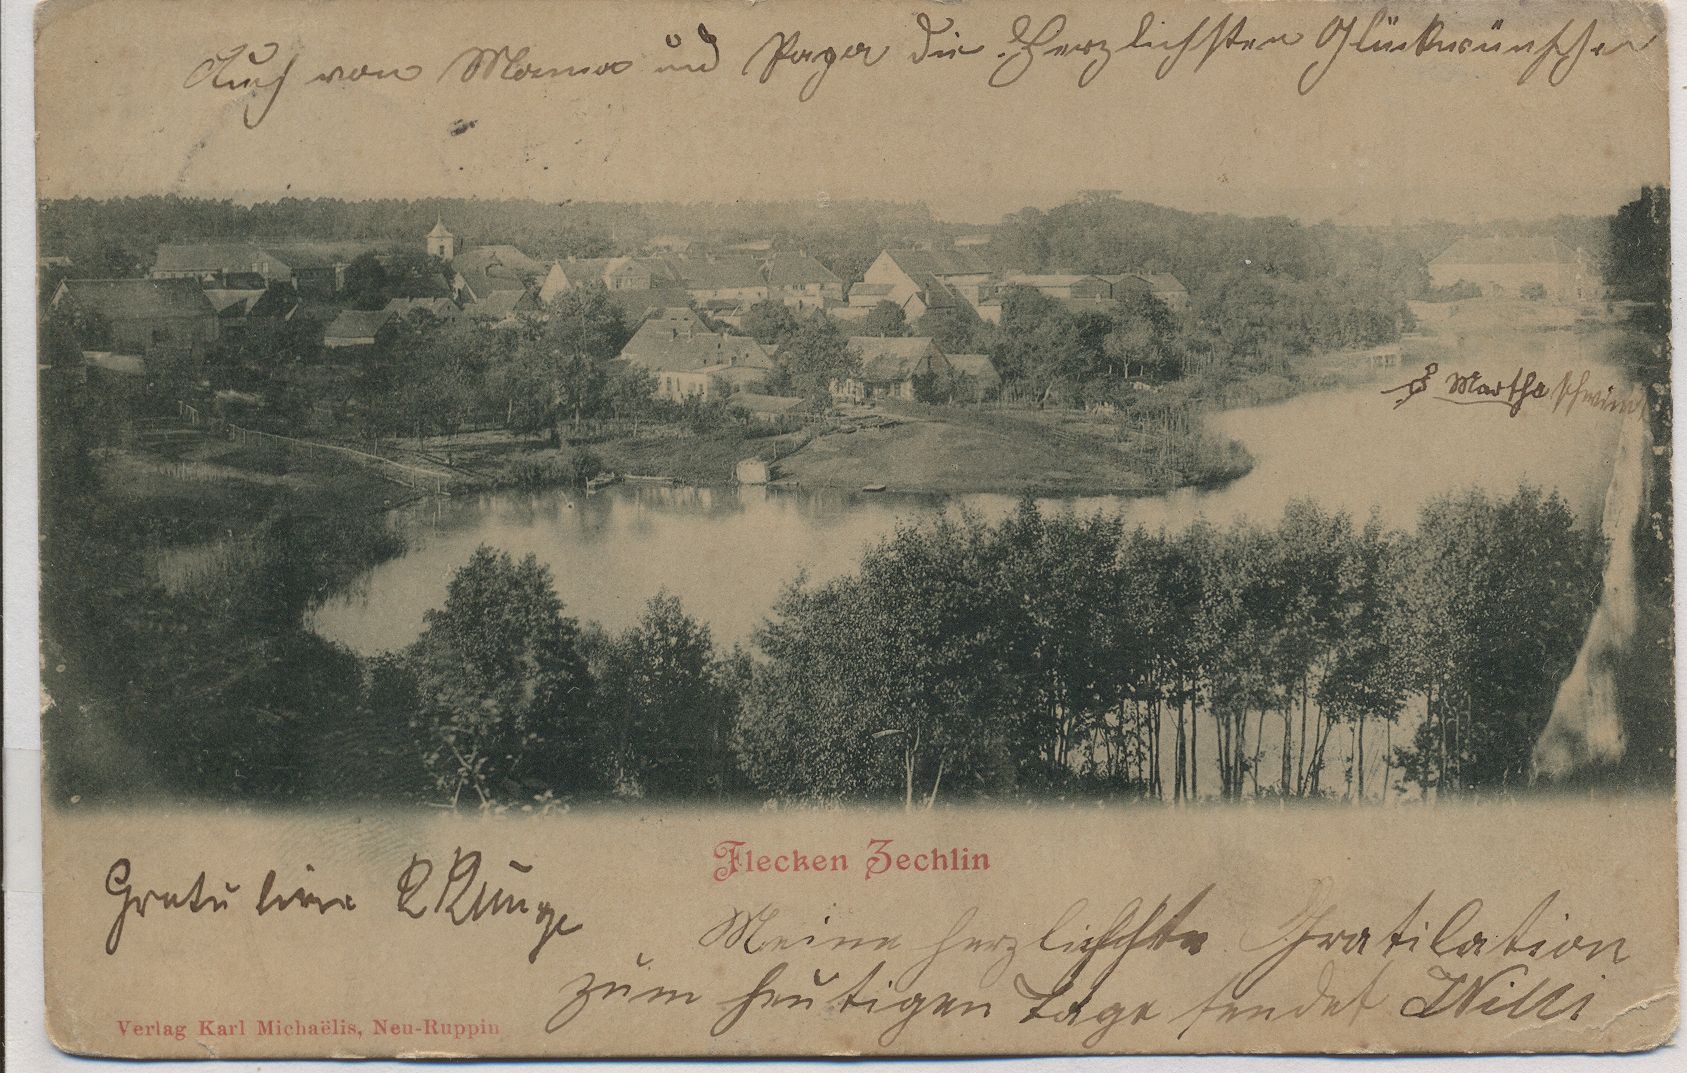 Auch von Mama und Papa die Herzlichsten Glückwünsche
Martha schwimt
Flecken Zechlin
Gratuliere R Runge
Meine herzlichste Gratilation
zum heutigen Tage sendet Willi
Verlag Karl Michaëlis, Neu-Ruppin